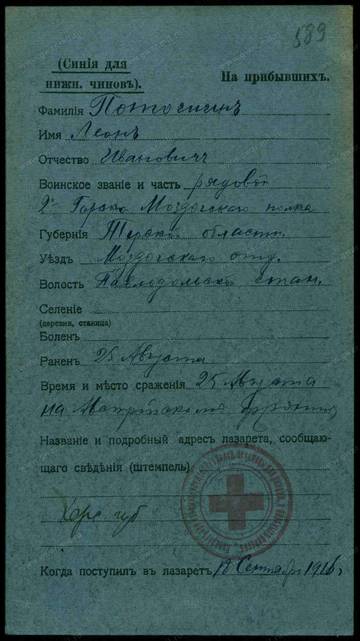 589
(Синія для нижн. чиновъ).
На прибывшихъ.
Фамилія
Имя Леонъ
Отчество Ивановичъ
Воинское званіе и часть рядовой
2й Горско Моздокскаго полка
Губернія Терской области
Уѣздъ Моздокскаго отд.
Волость Павлодольской стан.
Селеніе
(деревня, станица)
Боленъ
Раненъ 25 Августа
Время и мѣсто сраженія 25 Августа
на Австрійскомъ фронтѣ
Названіе и подробный адресъ лазарета, сообщаю-
щаго свѣдѣнія (штемпель)
губ
Когда поступилъ въ лазаретъ 18 Сентябр 1916 г